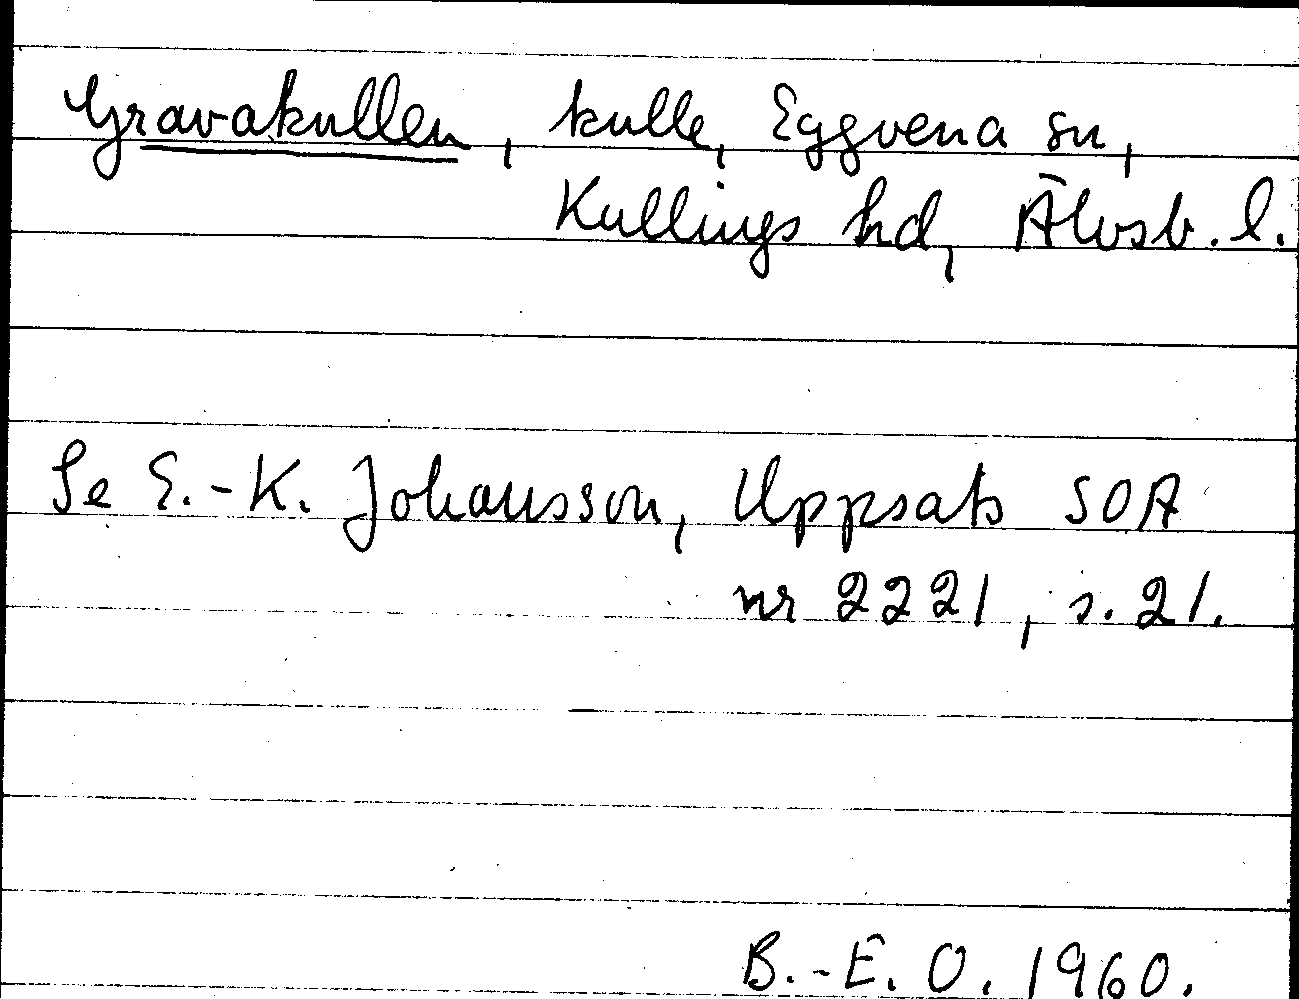 Gravakullen, kulle, Eggvena sn,
Kullings hd, Älvsb. l.
Se E.-K. Johansson, Uppsats SOA
nr 2221, s. 21.
B.-E. O. 1960.